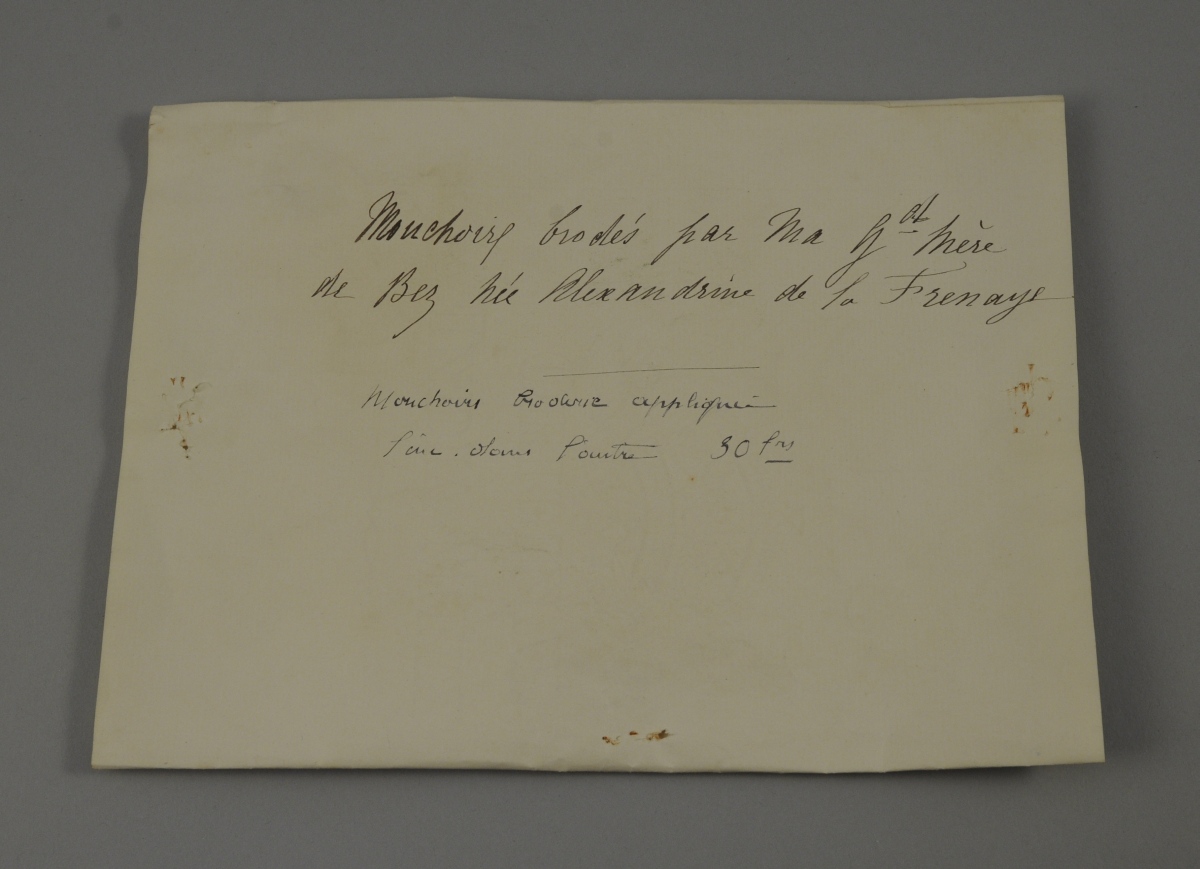 Mouchoirs brodés par Ma Gd Mère
de Bez née Alexandrine de la Frenaye
Mouchoirs broderie appliquée
l'une dans l'autre 30 frs